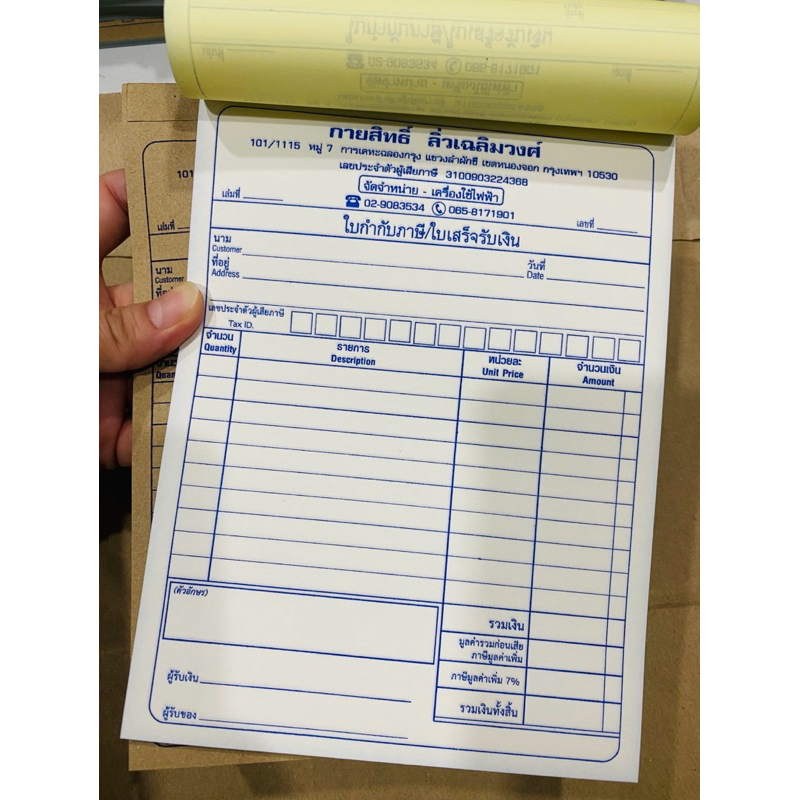 02-9083534 065-8171901
กายสิทธิ์ ลิ่วเฉลิมวงศ์
101/1115 หมู่ 7 การเคหะฉลองกรุง แขวงลำผักชี เขตหนองจอก กรุงเทพฯ 10530
เลขประจำตัวผู้เสียภาษี 3100903224368
จัดจำหน่าย - เครื่องใช้ไฟฟ้า
เล่มที่ 02-9083534 065-8171901 เลขที่
ใบกำกับภาษี/ใบเสร็จรับเงิน
นาม
Customer
วันที่
Date
ที่อยู่
Address
เลขประจำตัวผู้เสียภาษี
Tax ID.
จำนวน รายการ หน่วยละ จำนวนเงิน
Quantity Description Unit Price Amount
(ตัวอักษร)
รวมเงิน
มูลค่ารวมก่อนเสีย
ภาษีมูลค่าเพิ่ม
ภาษีมูลค่าเพิ่ม 7%
รวมเงินทั้งสิ้น
ผู้รับเงิน
ผู้รับของ
101
เล่มที่
นาม
Customer